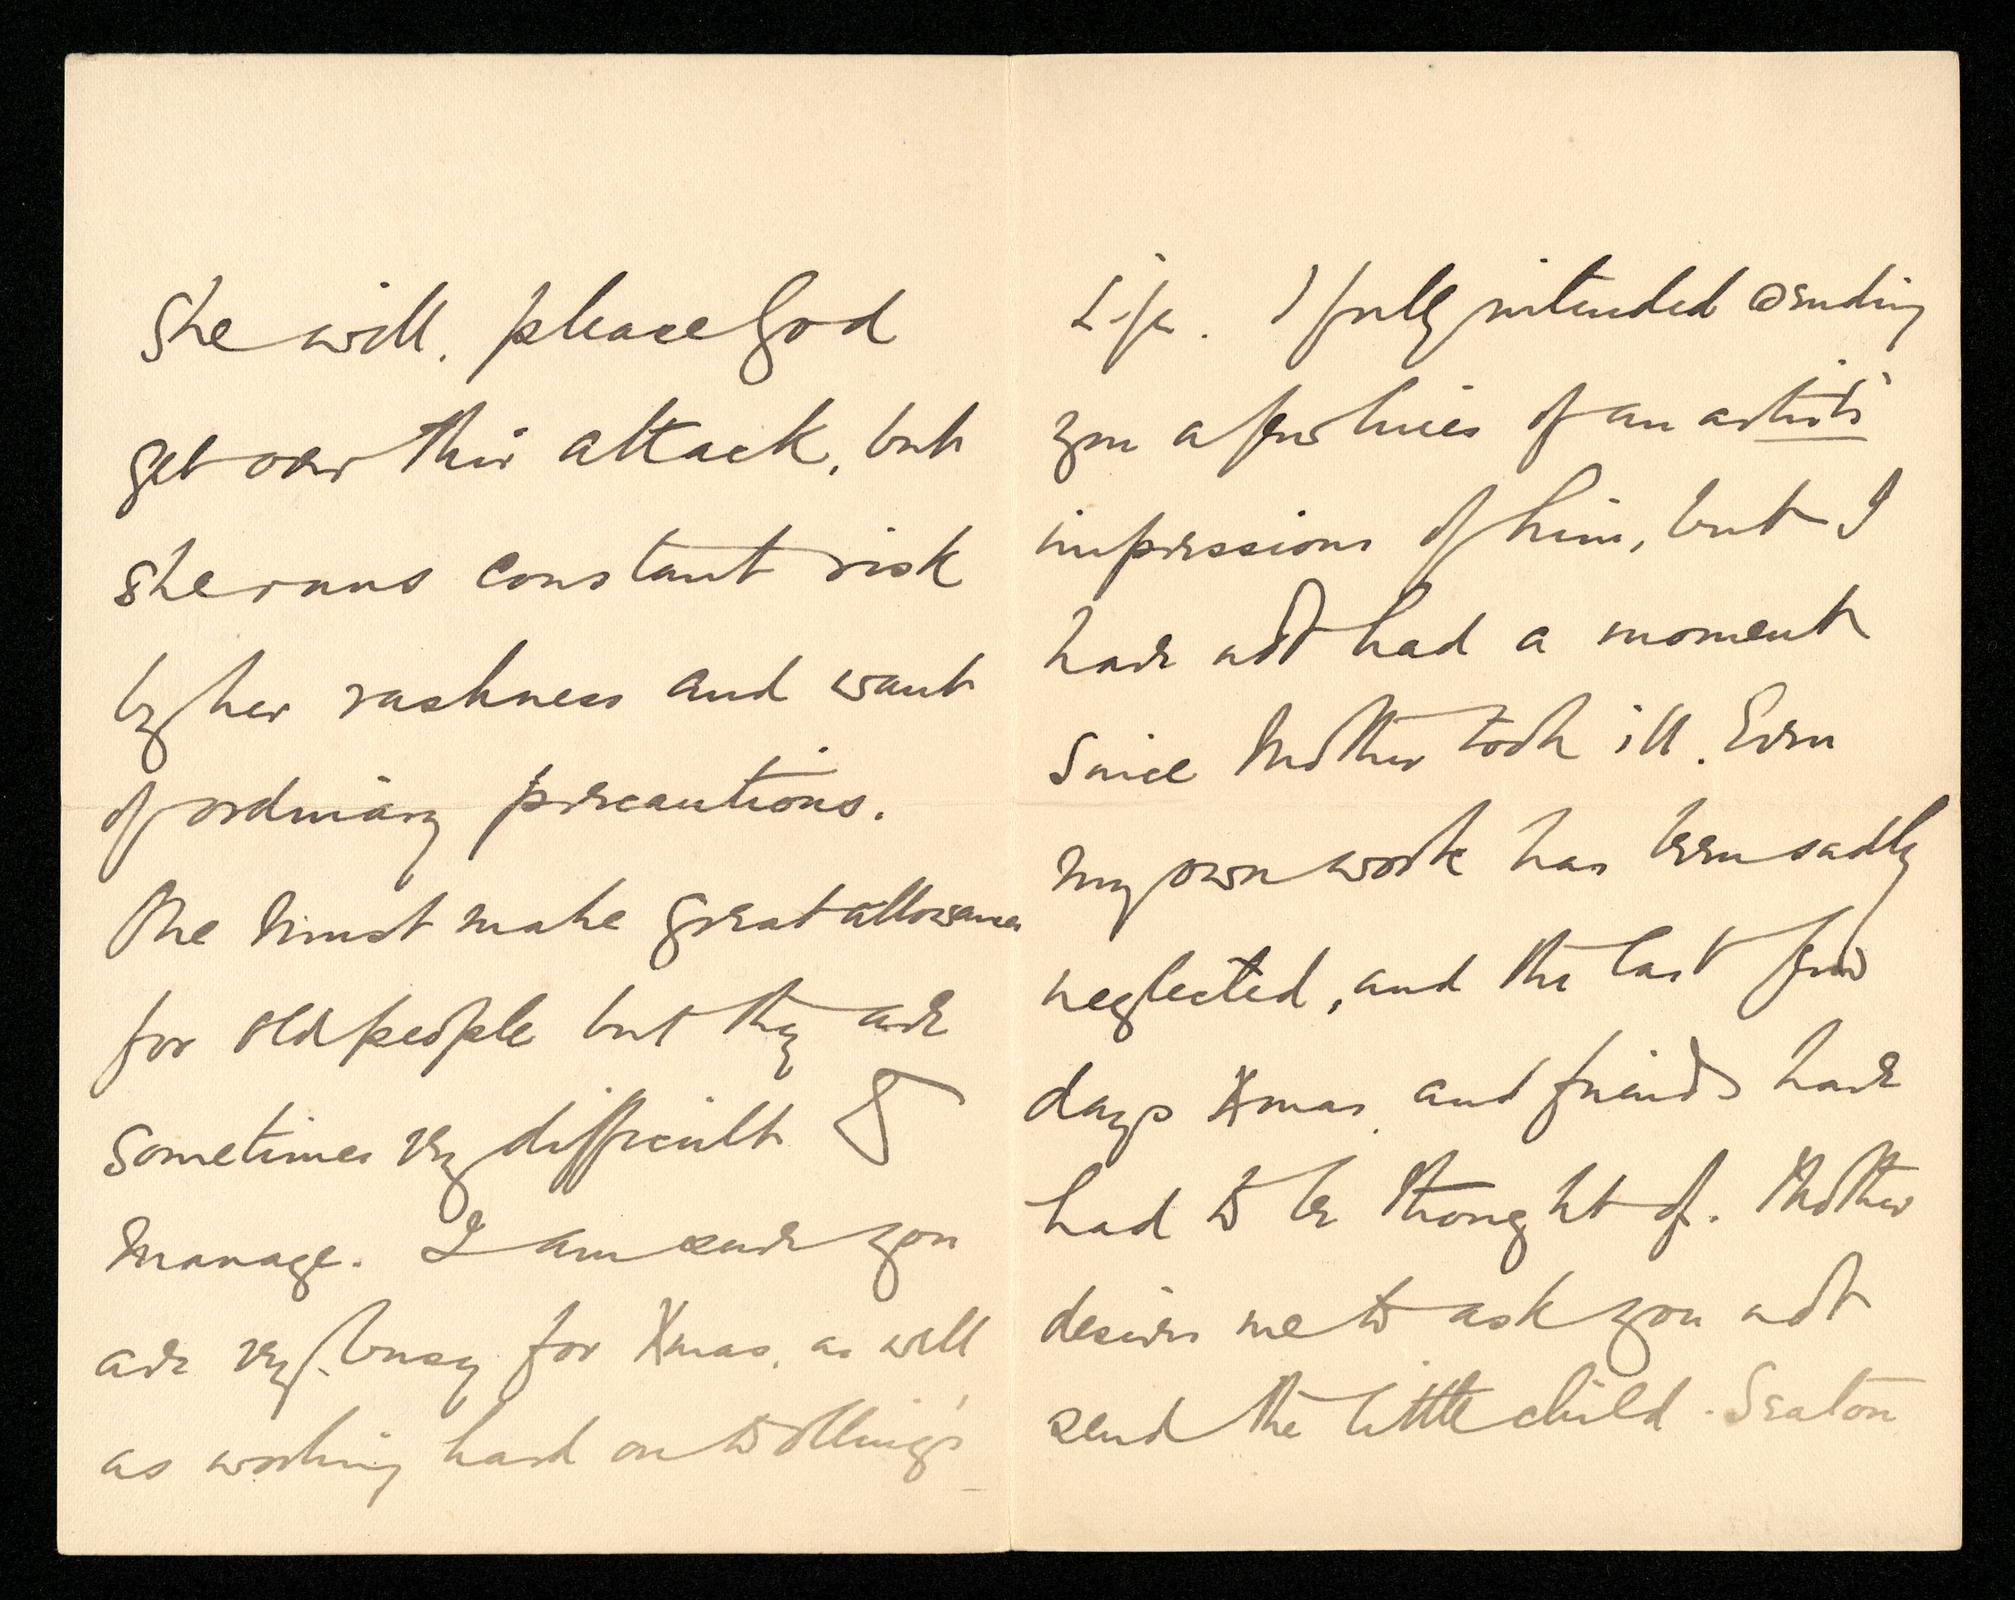 She will, please God
get over this attack, but
she runs constant risk
by her rashness and want
of ordinary precautions.
One must make great allowances
for old people but they are
sometimes very difficult to
manage. I am sure you
are very busy for Xmas, as well
as working hard on Dolling's
Life. I fully intended sending
you a few lines of an artist's
impressions of him, but I
have not had a moment
since Mother took ill. Even
my own work has been sadly
neglected, and the last few
days Xmas and friends have
had to be thought of. Mother
desires me to ask you not
send the little child. Seaton